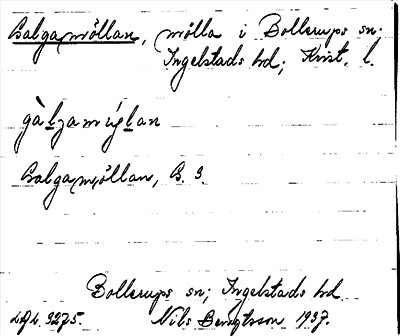 Galgamöllan, mölla i Bollerups sn;
Ingelstads hd; Krist. l.
Galgamöllan, G. 3.
Bollerups sn; Ingelstads hd
3275. Nils Bengtsson 1937.